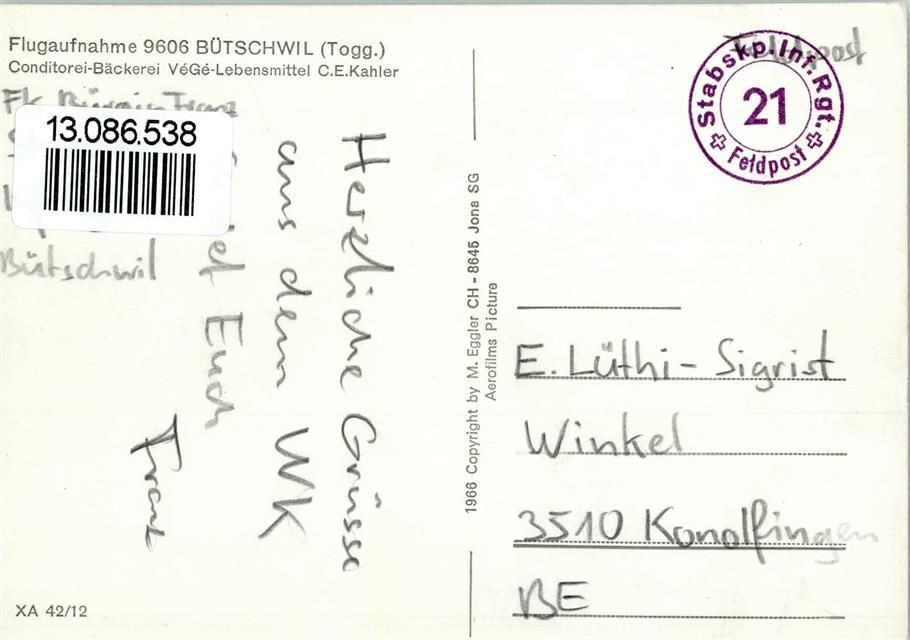 Flugaufnahme 9606 BÜTSCHWIL (Togg.)
Conditorei-Bäckerei VéGé-Lebensmittel C.E.Kahler
13.086.538
Bütschwil
Herzliche Grüsse
aus dem WK
Euch
Franz
XA 42/12
1966 Copyright by M. Eggler CH - 8645 Jona SG
Aerofilms Picture
Feldpost
Stabskp.Inf.Rgt.
21
Feldpost
E. Lüthi-Sigrist
Winkel
3510 Konolfingen
BE